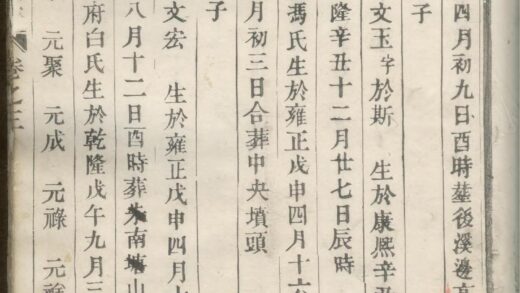 四月初九日酉時塟後溪邊
子
文玉 字於斯 生於康熈辛丑
隆辛丑十二月廿七日辰時
馮氏生於雍正戊申四月十六
月初三日合葬中央墳頭
子
文宏 生於雍正戊申四月
八月十二日酉時葬朱南塘山
府白氏生於乾隆戊午九月三
元聚 元成 元祿 元
卷之三